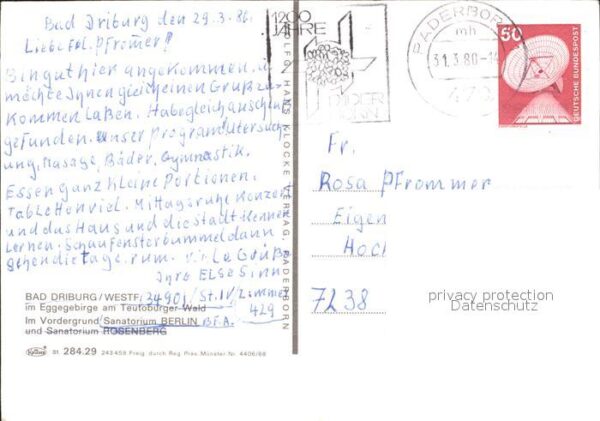 Bad Driburg den 29.3.80.
Liebe Fr. Pfromer!
Bin gut hier angekommen, u.
möchte Ihnen gleich einen Gruß zu-
kommen Laßen. Habe gleich anschluß
gefunden. unser Program! Utersuch-
ung, Masage, Bäder, Gymnastik.
Essen ganz kleine Portionen.
Tabletten viel. Mittagsruhe Konzert
und das Haus und die stadt kennen
Lernen: Schaufensterbummel dann
gehen die tage rum. viele Grüße
Ihre Else Sinn
BAD DRIBURG/WESTF. 34901/St. IV/Zimmer
im Eggegebirge am Teutoburger Wald 429
Im Vordergrund Sanatorium BERLIN BFA.
und Sanatorium ROSENBERG
81 284.29 243459 Freig. durch Reg. Präs. Münster Nr. 4406/68
HANS KLOCKE VERLAG, PADERBORN
1200
JAHRE
PADER
BORN
PADERBORN
mh
31.3.80-14
479
50
DEUTSCHE BUNDESPOST
Fr.
Rosa Pfrommer
Eigen
Hoch
7238
privacy protection
Datenschutz